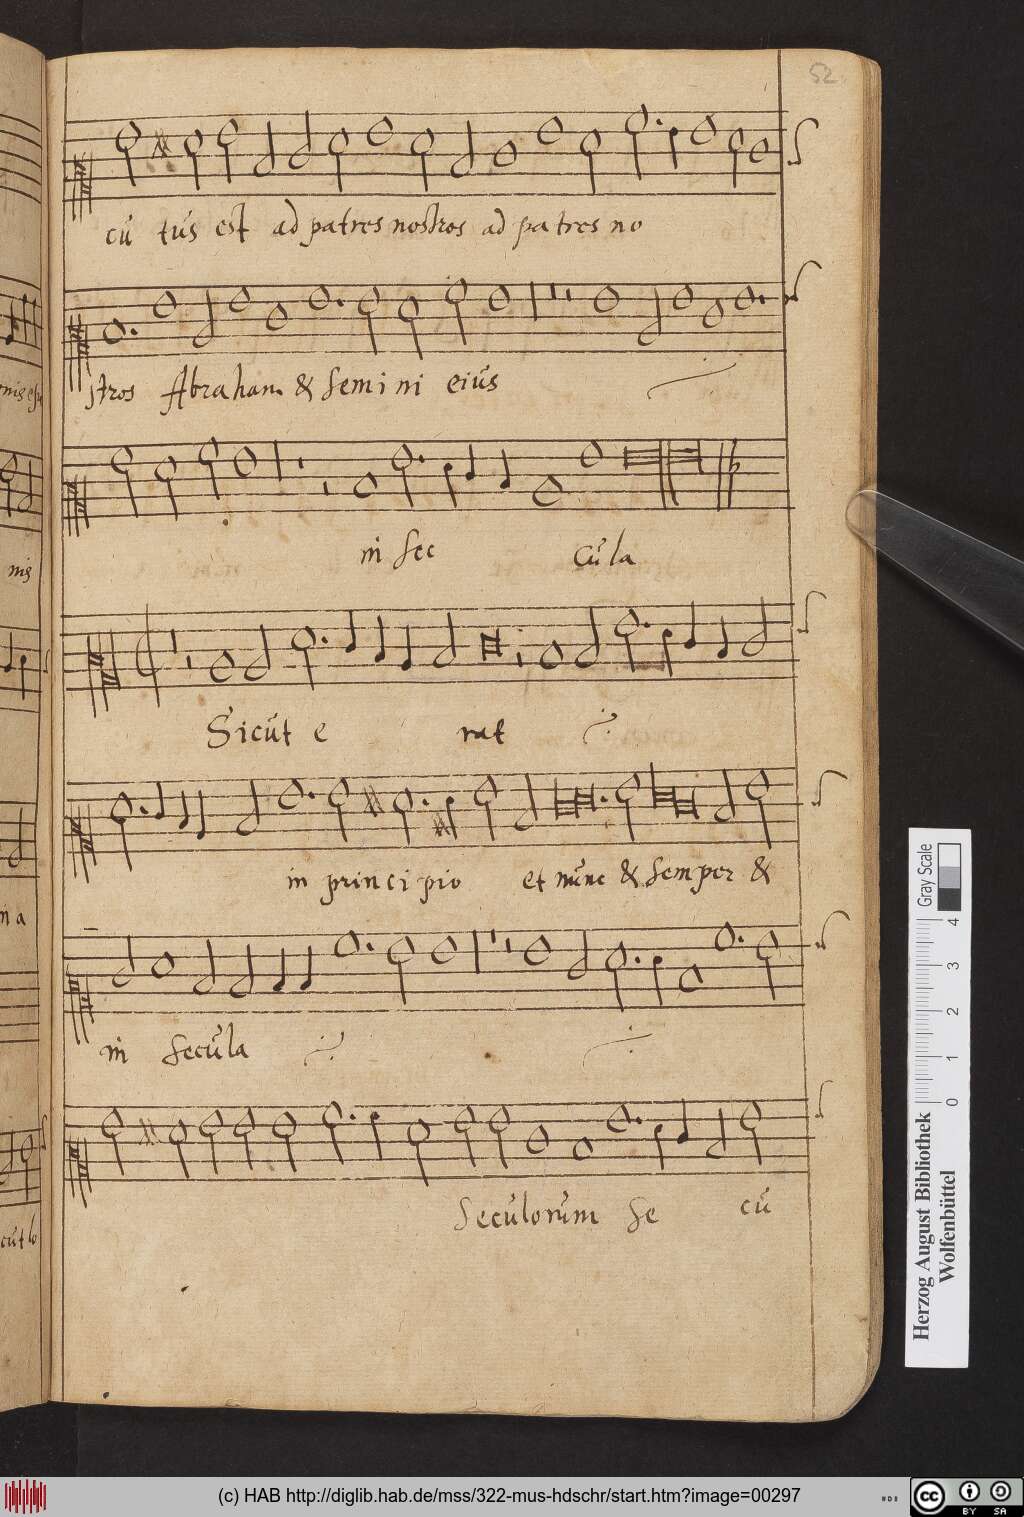 52
cũ tũs est ad patres nostros ad patres no
stros Abraham & semi ni eiũs
in sec cũla
Sicũt e rat
in princi pio et nũnc & semper &
in secũla
secũlorũm se cũ
nis
na
cũt lo
Gray Scale
0 1 2 3 4
Herzog August Bibliothek
Wolfenbüttel
(c) HAB http://diglib.hab.de/mss/322-mus-hdschr/start.htm?image=00297
cc BY SA